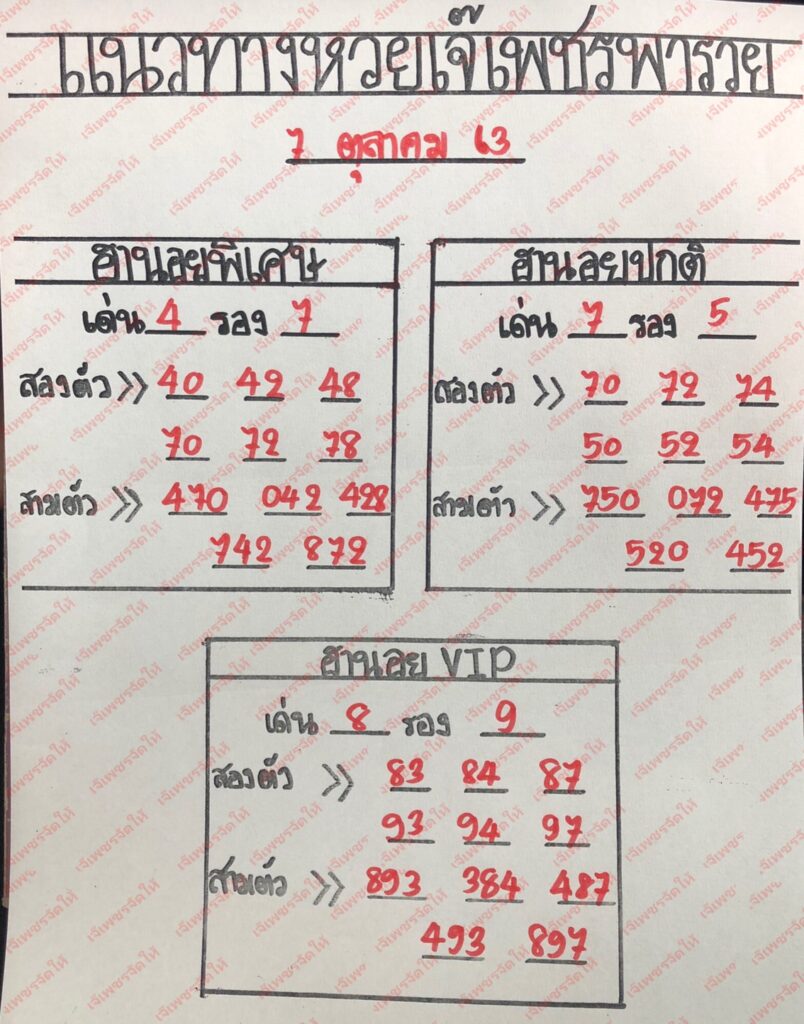 แนวทางหวยเจ๊เพชรพารวย
7 ตุลาคม 63
ฮานอยพิเศษ
เด่น 4 รอง 7
สองตัว >> 40 42 48
70 72 78
สามตัว >> 470 042 428
742 872
ฮานอยปกติ
เด่น 7 รอง 5
สองตัว >> 70 72 74
50 52 54
สามตัว >> 750 072 475
520 452
ฮานอย VIP
เด่น 8 รอง 9
สองตัว >> 83 84 87
93 94 97
สามตัว >> 893 384 487
493 897
เจ๊เพชรจัดให้